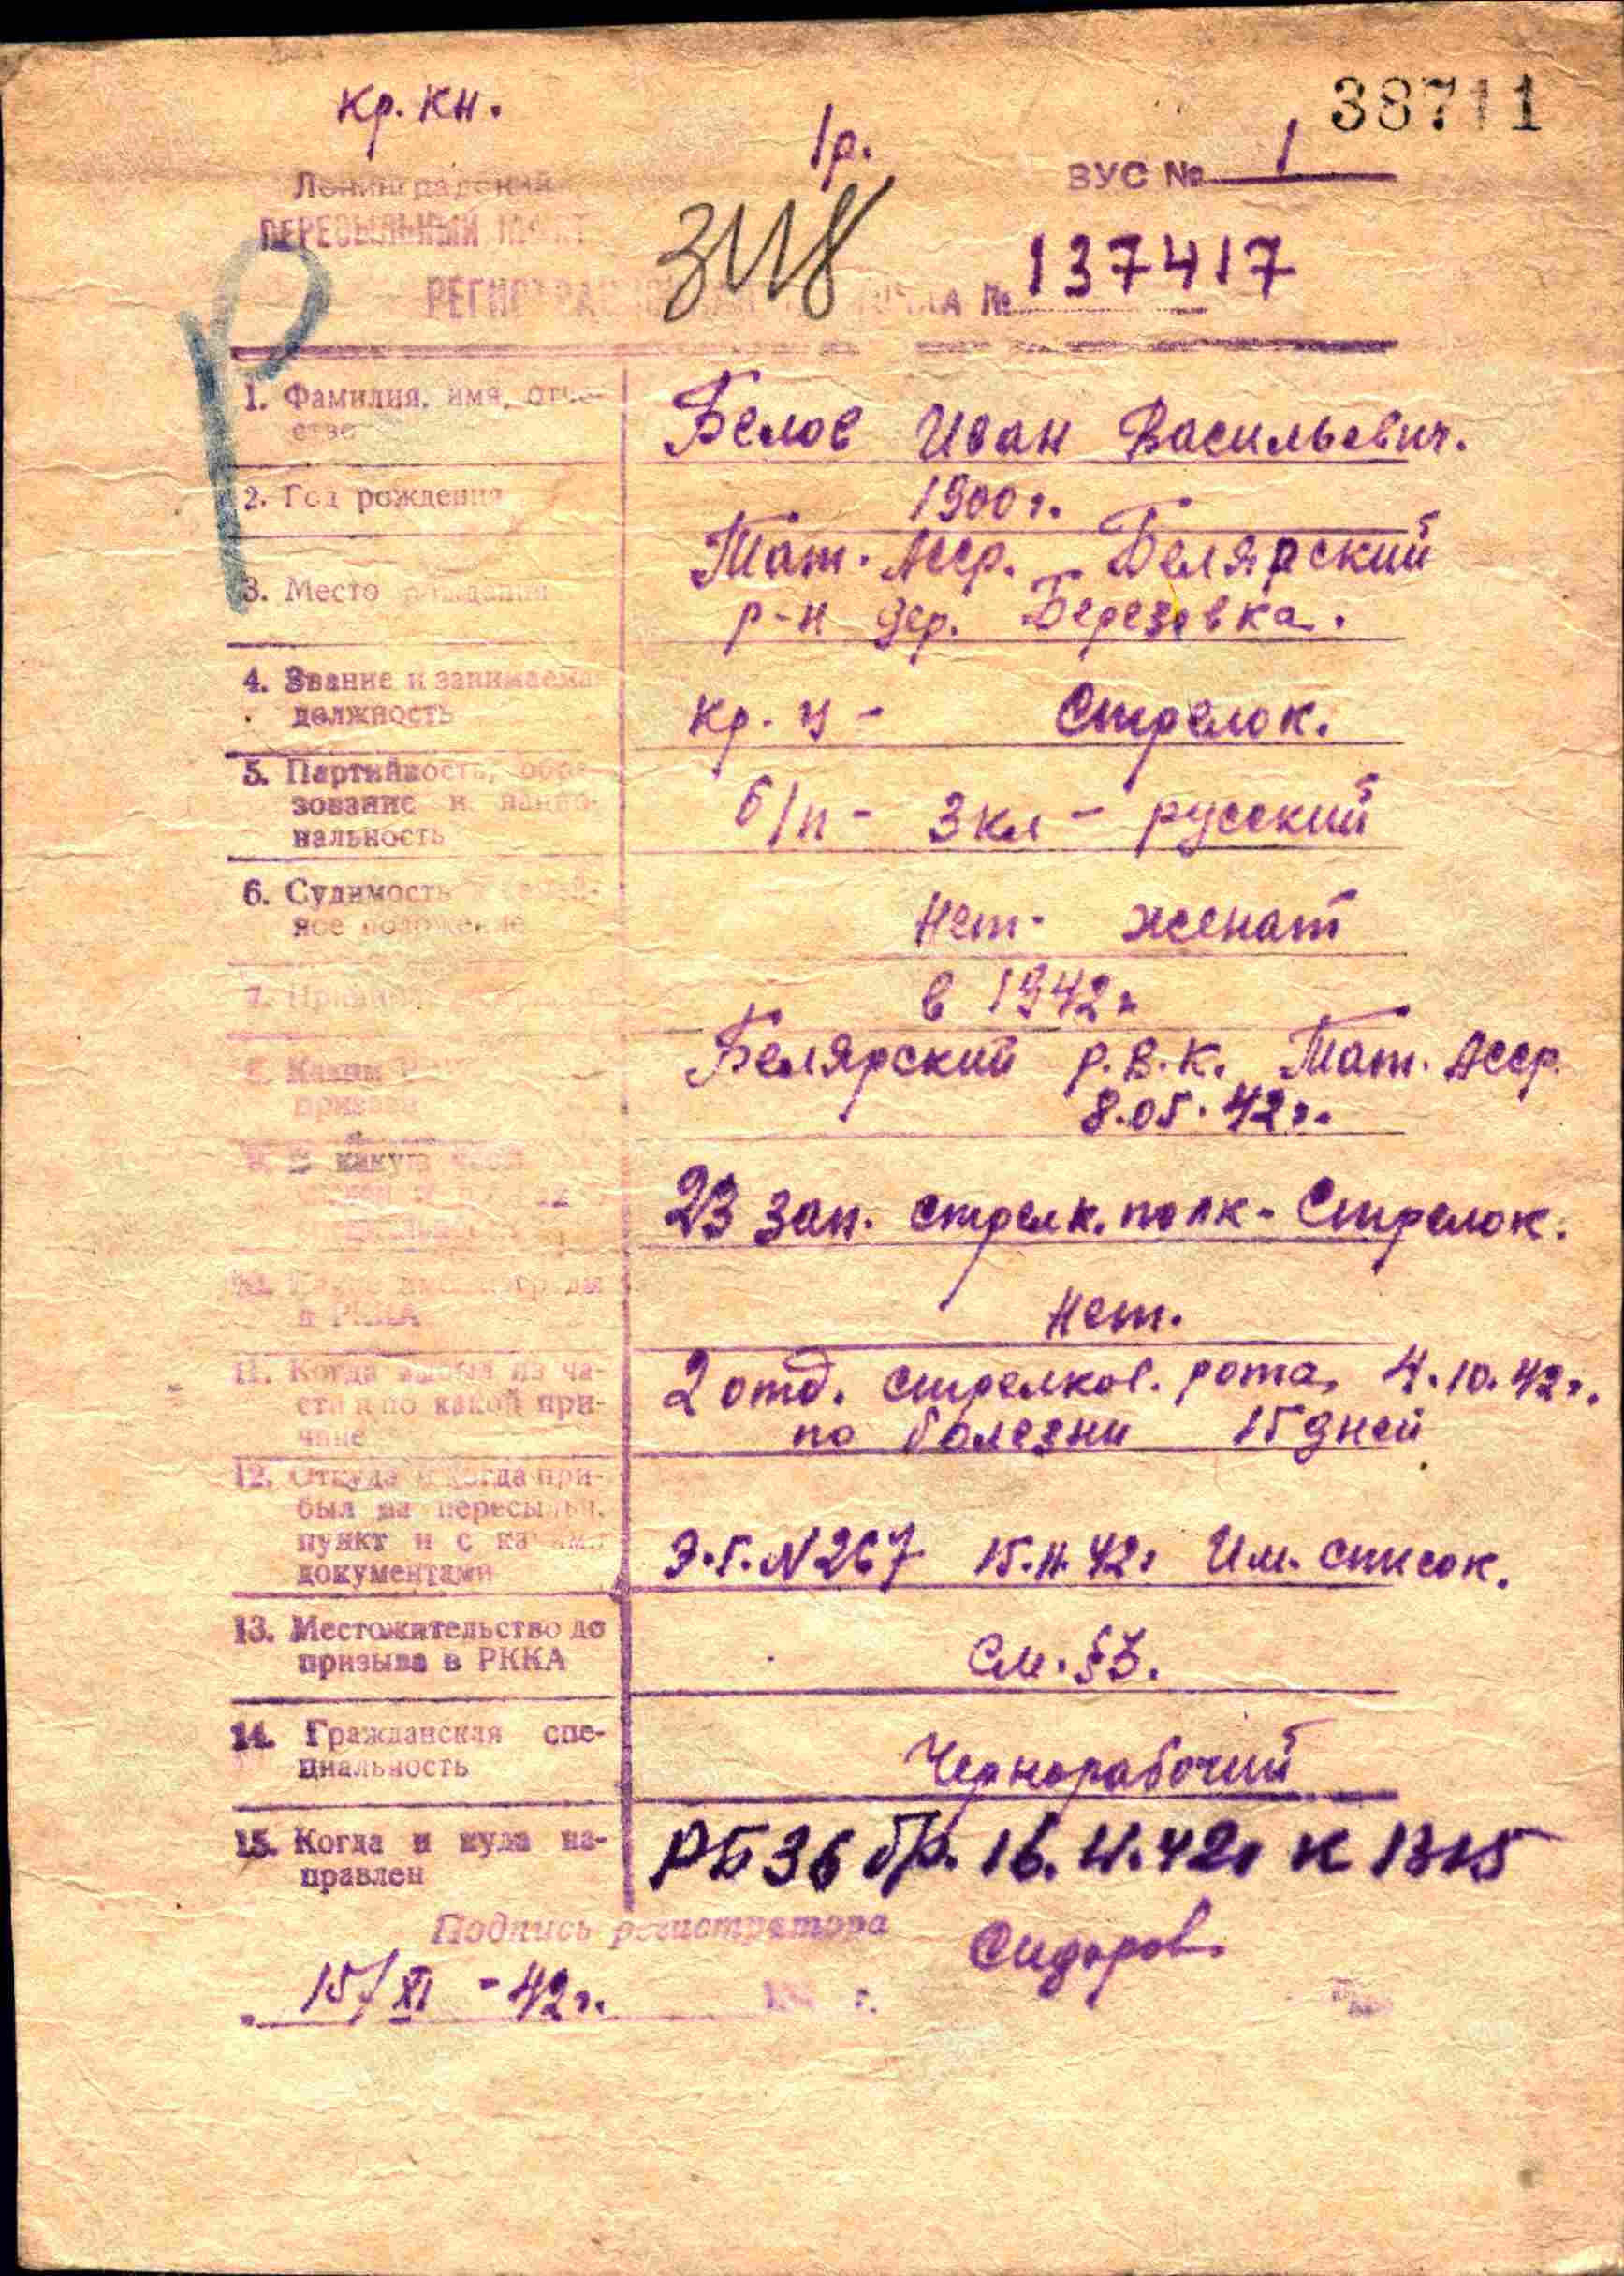 кр. кн.
38711
1р.
ВУС № 1
Ленинградский
ПЕРЕСЫЛЬНЫЙ ПУНКТ
137417
№
1. Фамилия, имя, отче-
ство
Белов Иван Васильевич.
2. Год рождения
1900 г.
3. Место рождения
Тат. Асср. Белярский
р-н дер. Березовка.
4. Звание и занимаемая
должность
кр-ц - Стрелок.
5. Партийность, обра-
зование и нацио-
нальность
б/п - 3 кл - русский
6. Судимость и семей-
ное положение
Нет - женат
7.
в 1942 г.
8. Каким
призван
Белярский Р.В.К. Тат. Асср.
8.05.42 г.
9. В какую часть
23 зап. стрелк. полк - Стрелок.
в РККА
Нет.
11. Когда выбыл из ча-
сти и по какой при-
чине
2 отд. стрелков. рота, 4.10.42 г.
по болезни 15 дней
12. Откуда и когда при-
был на пересыльн.
пункт и с какими
документами
Э.Г. N 267 15.11.42 г Им. список.
13. Местожительство до
призыва в РККА
См. §3.
14. Гражданская спе-
циальность
Чернорабочий
15. Когда и куда на-
правлен
РБ 36 бр. 16.11.42 г к 1315
Подпись регистратора
Сидоров
15/XI - 42 г.
г.